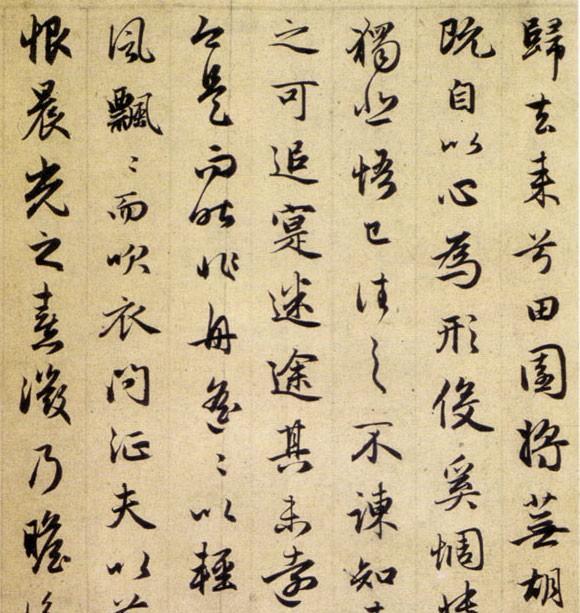 歸去来兮田園將蕪胡
既自以心為形役奚惆悵
獨悲悟已往之不諫知
之可追寔迷途其未遠
今是而昨非舟遙〻以輕
風飄〻而吹衣問征夫以前
恨晨光之熹微乃瞻